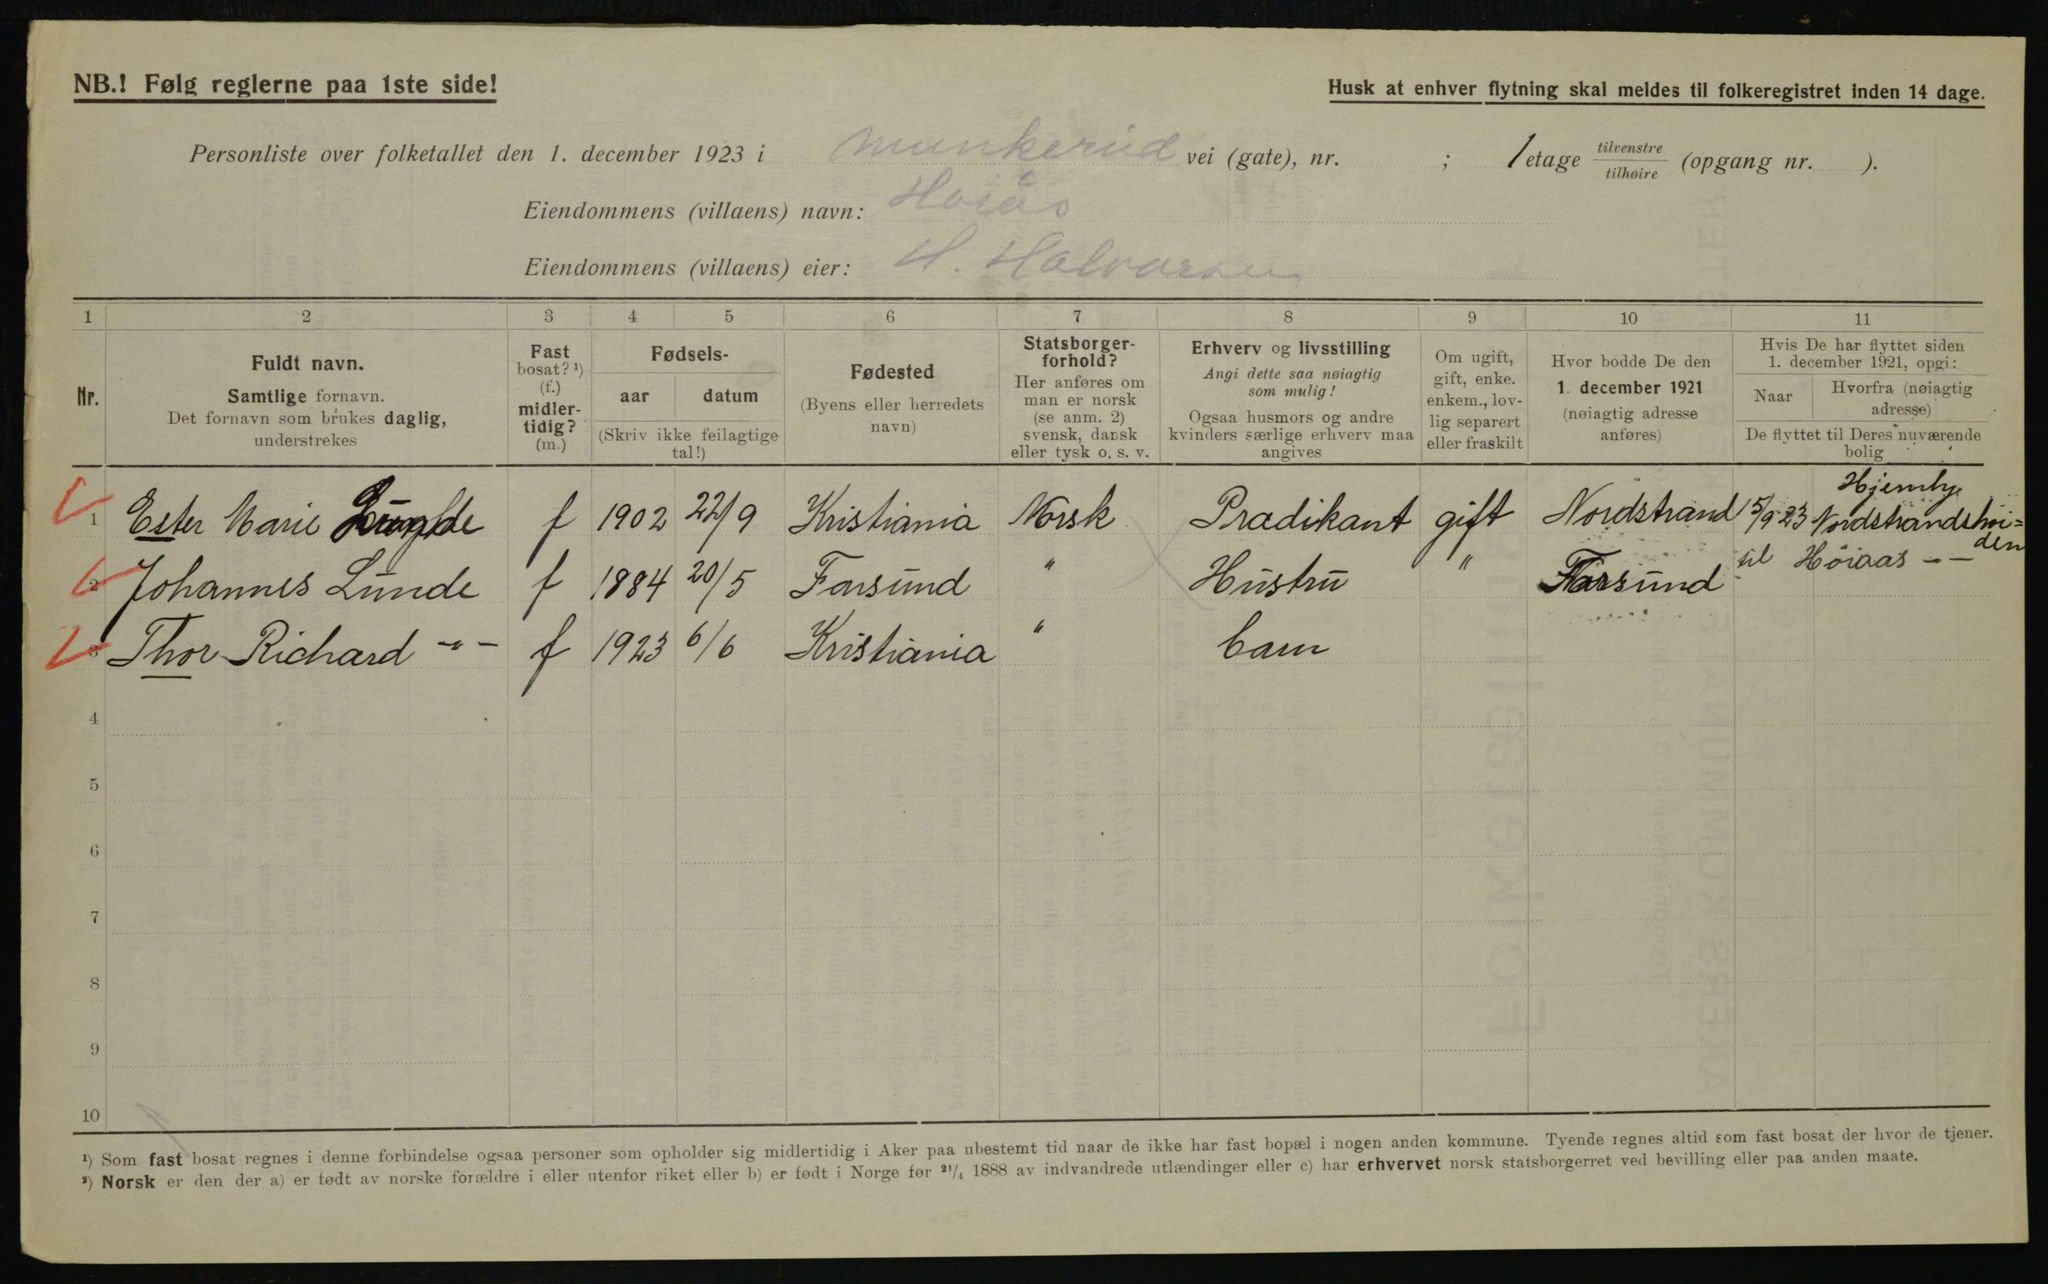 NB.! Følg reglerne paa 1ste side!
Husk at enhver flytning skal meldes til folkeregistret inden 14 dage.
Personliste over folketallet den 1. december 1923 i Munkerud vei (gate), nr. ; 1 etage tilvenstre tilhøire (opgang nr. ).
Eiendommens (villaens) navn: Høiås
Eiendommens (villaens) eier: H. Halvorsen
1 2 3 4 5 6 7 8 9 10 11
Nr.
Fuldt navn.
Samtlige fornavn.
Det fornavn som brukes daglig,
understrekes
Fast
bosat? ¹)
(f.)
midler-
tidig?
(m.)
Fødsels-
aar datum
(Skriv ikke feilagtige
tal!)
Fødested
(Byens eller herredets
navn)
Statsborger-
forhold?
Her anføres om
man er norsk
(se anm. 2)
svensk, dansk
eller tysk o. s. v.
Erhverv og livsstilling
Angi dette saa nøiagtig
som mulig!
Ogsaa husmors og andre
kvinders særlige erhverv maa
angives
Om ugift,
gift, enke.
enkem., lov-
lig separert
eller fraskilt
Hvor bodde De den
1. december 1921
(nøiagtig adresse
anføres)
Hvis De har flyttet siden
1. december 1921, opgi:
Naar
Hvorfra (nøiagtig
adresse)
De flyttet til Deres nuværende
bolig
Hjemly
1 Ester Marie Lunde f 1902 22/9 Kristiania Norsk Prædikant gift Nordstrand 15/9 23 Nordstrandshøi=
den
2 Johannes Lunde f 1884 20/5 Farsund " Hustru " Farsund til Høiaas - -
3 Thor Richard -"- f 1923 6/6 Kristiania " barn
4
5
6
7
8
9
10
¹) Som fast bosat regnes i denne forbindelse ogsaa personer som opholder sig midlertidig i Aker paa ubestemt tid naar de ikke har fast bopæl i nogen anden kommune. Tyende regnes altid som fast bosat der hvor de tjener.
²) Norsk er den der a) er født av norske forældre i eller utenfor riket eller b) er født i Norge før 21/4 1888 av indvandrede utlændinger eller c) har erhvervet norsk statsborgerret ved bevilling eller paa anden maate.